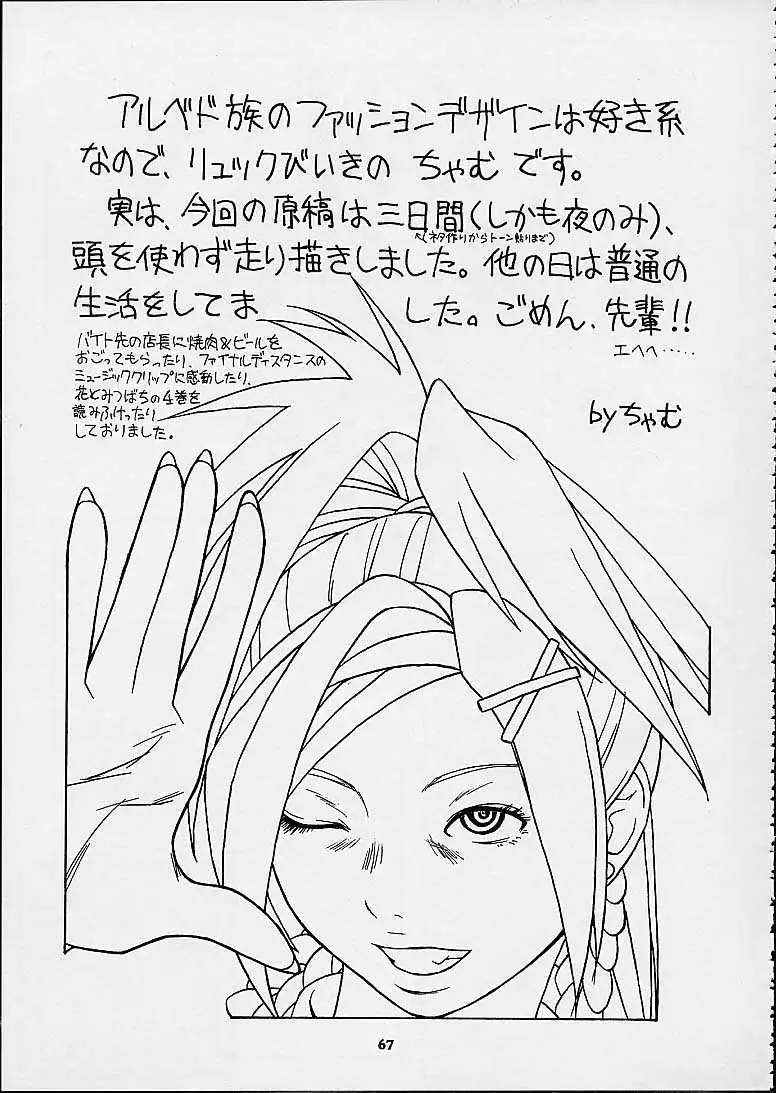 アルベド族のファッションデザインは好き系
なので、リュックびいきの ちゃむ です。
実は、今回の原稿は三日間(しかも夜のみ)、
(ネタ作りからトーン貼りまで)
頭を使わず走り描きしました。他の日は普通の
生活をしてま した。ごめん、先輩!!
エヘヘ……
バイト先の店長に焼肉&ビールを
おごってもらったり、ファイナルディスタンスの
ミュージッククリップに感動したり、
花とみつばちの4巻を
読みふけったり
しておりました。
byちゃむ
67